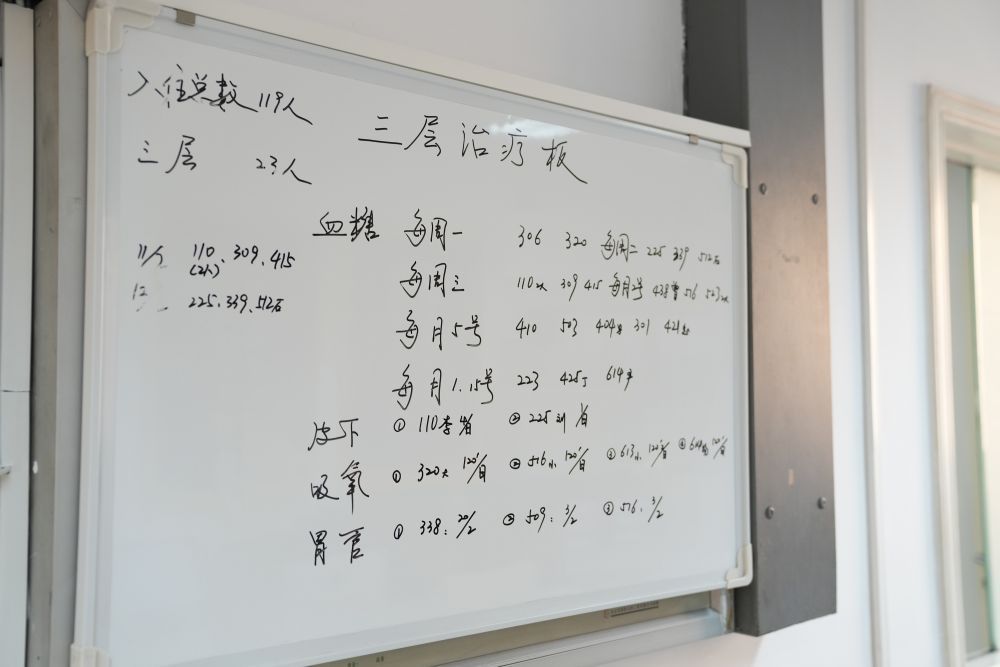 入住总数 119人
三层治疗板
三层 23人
血糖 每周一 306 320 每周二 225 339 512右
11/ 110 . 309 . 415
(2人)
每周三 110 2人 309 415 每月2号 438 516 523 2人
12 225 . 339 . 512右
每月5号 410 503 404 301 421
每月1.15号 223 425 614
皮下 ① 110李 ② 225刘
吸氧 ① 320大 120'/日 ② 516小 120'/日 ③ 613小 120'/日 ④ 120'/日
胃管 ① 338: 20/2 ② 509: 3/2 ③ 516: 3/2